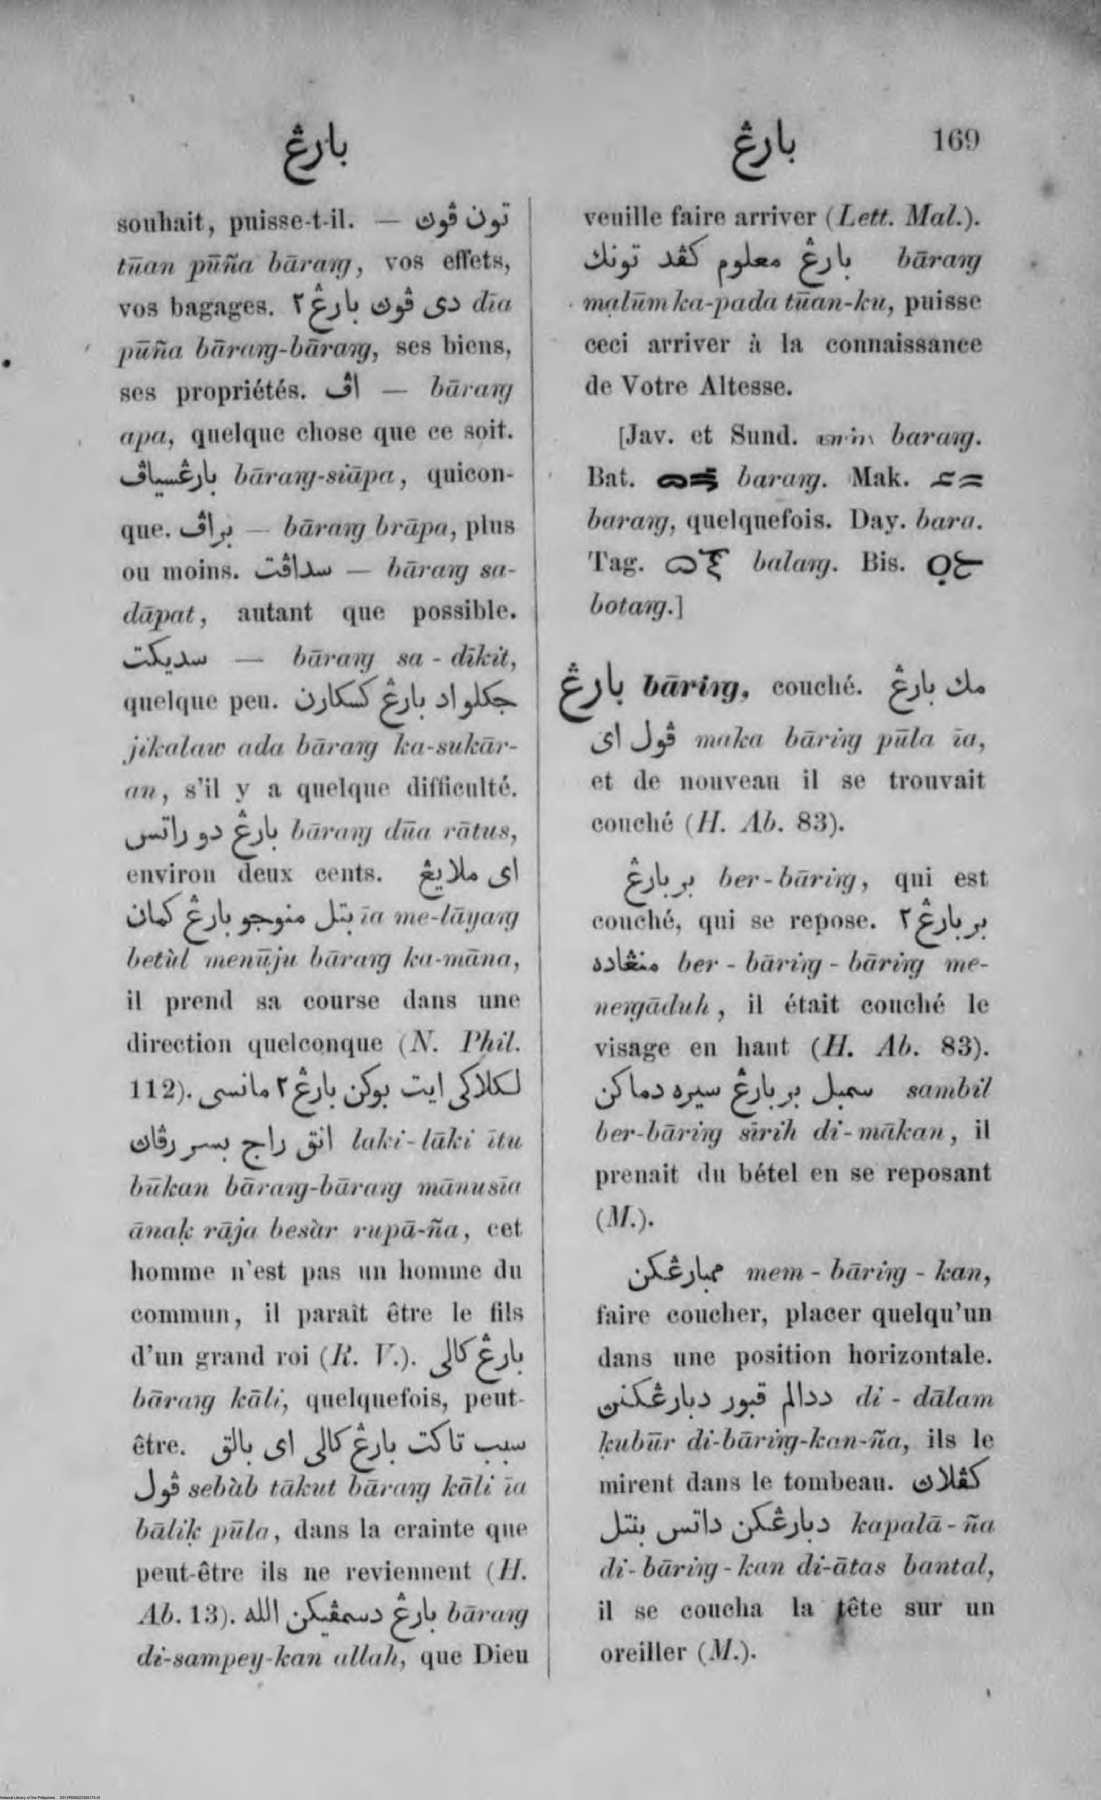 بارڠ
بارڠ
169
souhait, puisse-t-il. — تون ڤوڽ
tūan pūña bārang, vos effets,
vos bagages. دي ڤوڽ بارڠ٢ dīa
pūña bārang-bārang, ses biens,
ses propriétés. اڤ — bārang
apa, quelque chose que ce soit.
بارڠسياڤ bārang-siāpa, quicon-
que. براڤ — bārang brāpa, plus
ou moins. سداڤت — bārang sa-
dāpat, autant que possible.
سديكت — bārang sa-dīkit,
quelque peu. جكلو اد بارڠ كسكارن
jikalaw ada bārang ka-sukār-
an, s'il y a quelque difficulté.
بارڠ دو راتس bārang dūa rātus,
environ deux cents. اى ملايڠ
بتل منوجو بارڠ كمان īa me-lāyang
betùl menūju bārang ka-māna,
il prend sa course dans une
direction quelconque (N. Phil.
112). لكلاكى ايت بوكن بارڠ٢ مانسى
انق راج بسر رڤاڽ laki-lāki ītu
būkan bārang-bārang mānusīa
ānaḳ rāja besàr rupā-ña, cet
homme n'est pas un homme du
commun, il paraît être le fils
d'un grand roi (R. V.). بارڠ كالى
bārang kāli, quelquefois, peut-
être. سبب تاكت بارڠ كالى اى بالق
ڤول sebàb tākut bārang kāli īa
bāliḳ pūla, dans la crainte que
peut-être ils ne reviennent (H.
Ab. 13). بارڠ دسمڤيكن الله bārang
di-sampey-kan allah, que Dieu
veuille faire arriver (Lett. Mal.).
بارڠ معلوم كڤد تونك bārang
maạlūm ka-pada tūan-ku, puisse
ceci arriver à la connaissance
de Votre Altesse.
[Jav. et Sund. barang.
Bat. barang. Mak.
barang, quelquefois. Day. bara.
Tag. balang. Bis.
botang.]
بارڠ bāring, couché. مك بارڠ
ڤول اى maka bāring pūla īa,
et de nouveau il se trouvait
couché (H. Ab. 83).
بر بارڠ ber-bāring, qui est
couché, qui se repose. بر بارڠ٢
منڠاده ber-bāring-bāring me-
nengāduh, il était couché le
visage en haut (H. Ab. 83).
سمبل بر بارڠ سيره دماكن sambil
ber-bāring sīrih di-mākan, il
prenait du bétel en se reposant
(M.).
ممبارڠكن mem-bāring-kan,
faire coucher, placer quelqu'un
dans une position horizontale.
ددالم قبور دبارڠكنڽ di-dālam
ḳubūr di-bāring-kan-ña, ils le
mirent dans le tombeau. كڤلاڽ
دبارڠكن داتس بنتل kapalā-ña
di-bāring-kan di-ātas bantal,
il se coucha la tête sur un
oreiller (M.).